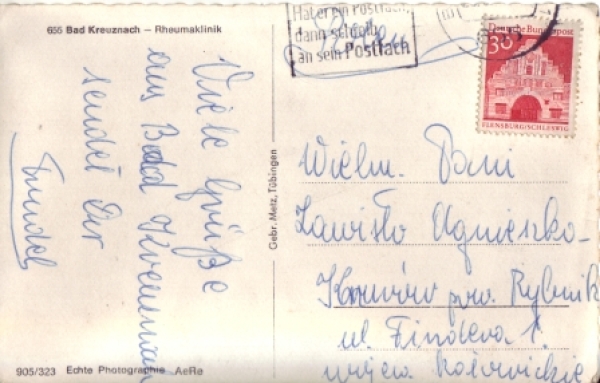 655 Bad Kreuznach – Rheumaklinik
Viele Grüße
aus Bad Kreuznach
sendet Dir
Hat er ein Postfach,
dann schreib
an sein Postfach
30
Deutsche Bundespost
FLENSBURG/SCHLESWIG
Gebr. Metz, Tübingen
Wielm. Pani
Zawisło Agnieszka
pow. Rybnik
ul.
1.
wojew. Katowickie
905/323 Echte Photographie AeRe